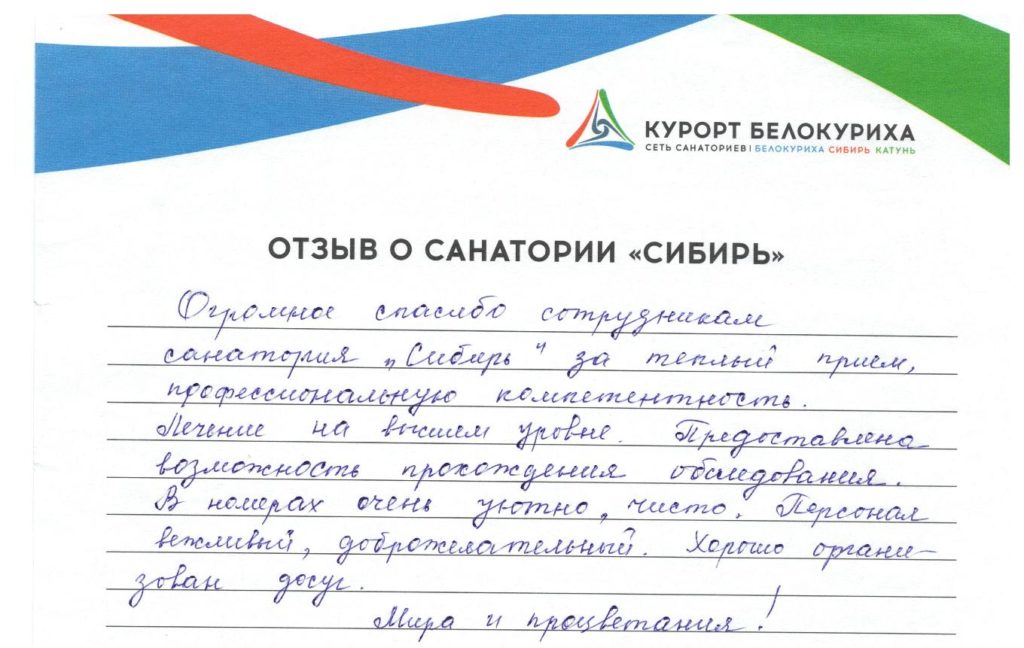 КУРОРТ БЕЛОКУРИХА
СЕТЬ САНАТОРИЕВ | БЕЛОКУРИХА СИБИРЬ КАТУНЬ
ОТЗЫВ О САНАТОРИИ «СИБИРЬ»
Огромное спасибо сотрудникам
санатория „Сибирь“ за теплый прием,
профессиональную компетентность.
Лечение на высшем уровне. Предоставлена
возможность прохождения обследования.
В номерах очень уютно, чисто. Персонал
вежливый, доброжелательный. Хорошо органи-
зован досуг.
Мира и процветания!